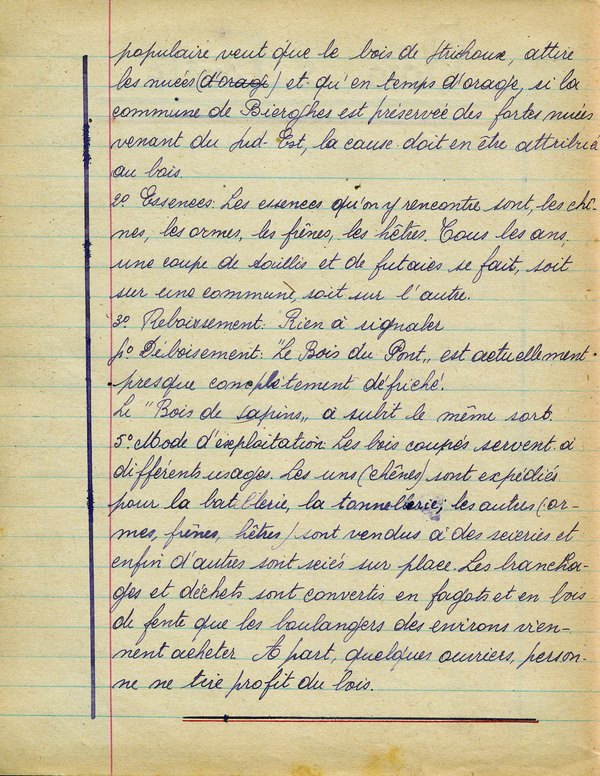 populaire veut que le bois de Strihoux, attire
les nuées (d'orage) et qu'en temps d'orage, si la
commune de Bierghes est préservée des fortes nuées
venant du Sud-Est, la cause doit en être attribué
au bois.
2° Essences: Les essences qu'on y rencontre sont, les chê-
nes, les ormes, les frênes, les hêtres. Tous les ans,
une coupe de taillis et de futaies se fait, soit
sur une commune, soit sur l'autre.
3° Reboisement: Rien à signaler
4° Déboisement: "Le Bois du Pont" est actuellement
presque complètement défriché.
Le "Bois de Sapins" a subit le même sort.
5° Mode d'exploitation: Les bois coupés servent à
différents usages. Les uns (chênes) sont expédiés
pour la batellerie, la tonnellerie, les autres (or-
mes, frênes, hêtres) sont vendus à des scieries et
enfin d'autres sont sciés sur place. Les brancha-
ges et déchets sont convertis en fagots et en bois
de fente que les boulangers des environs vien-
nent acheter. A part, quelques ouvriers, person-
ne ne tire profit du bois.